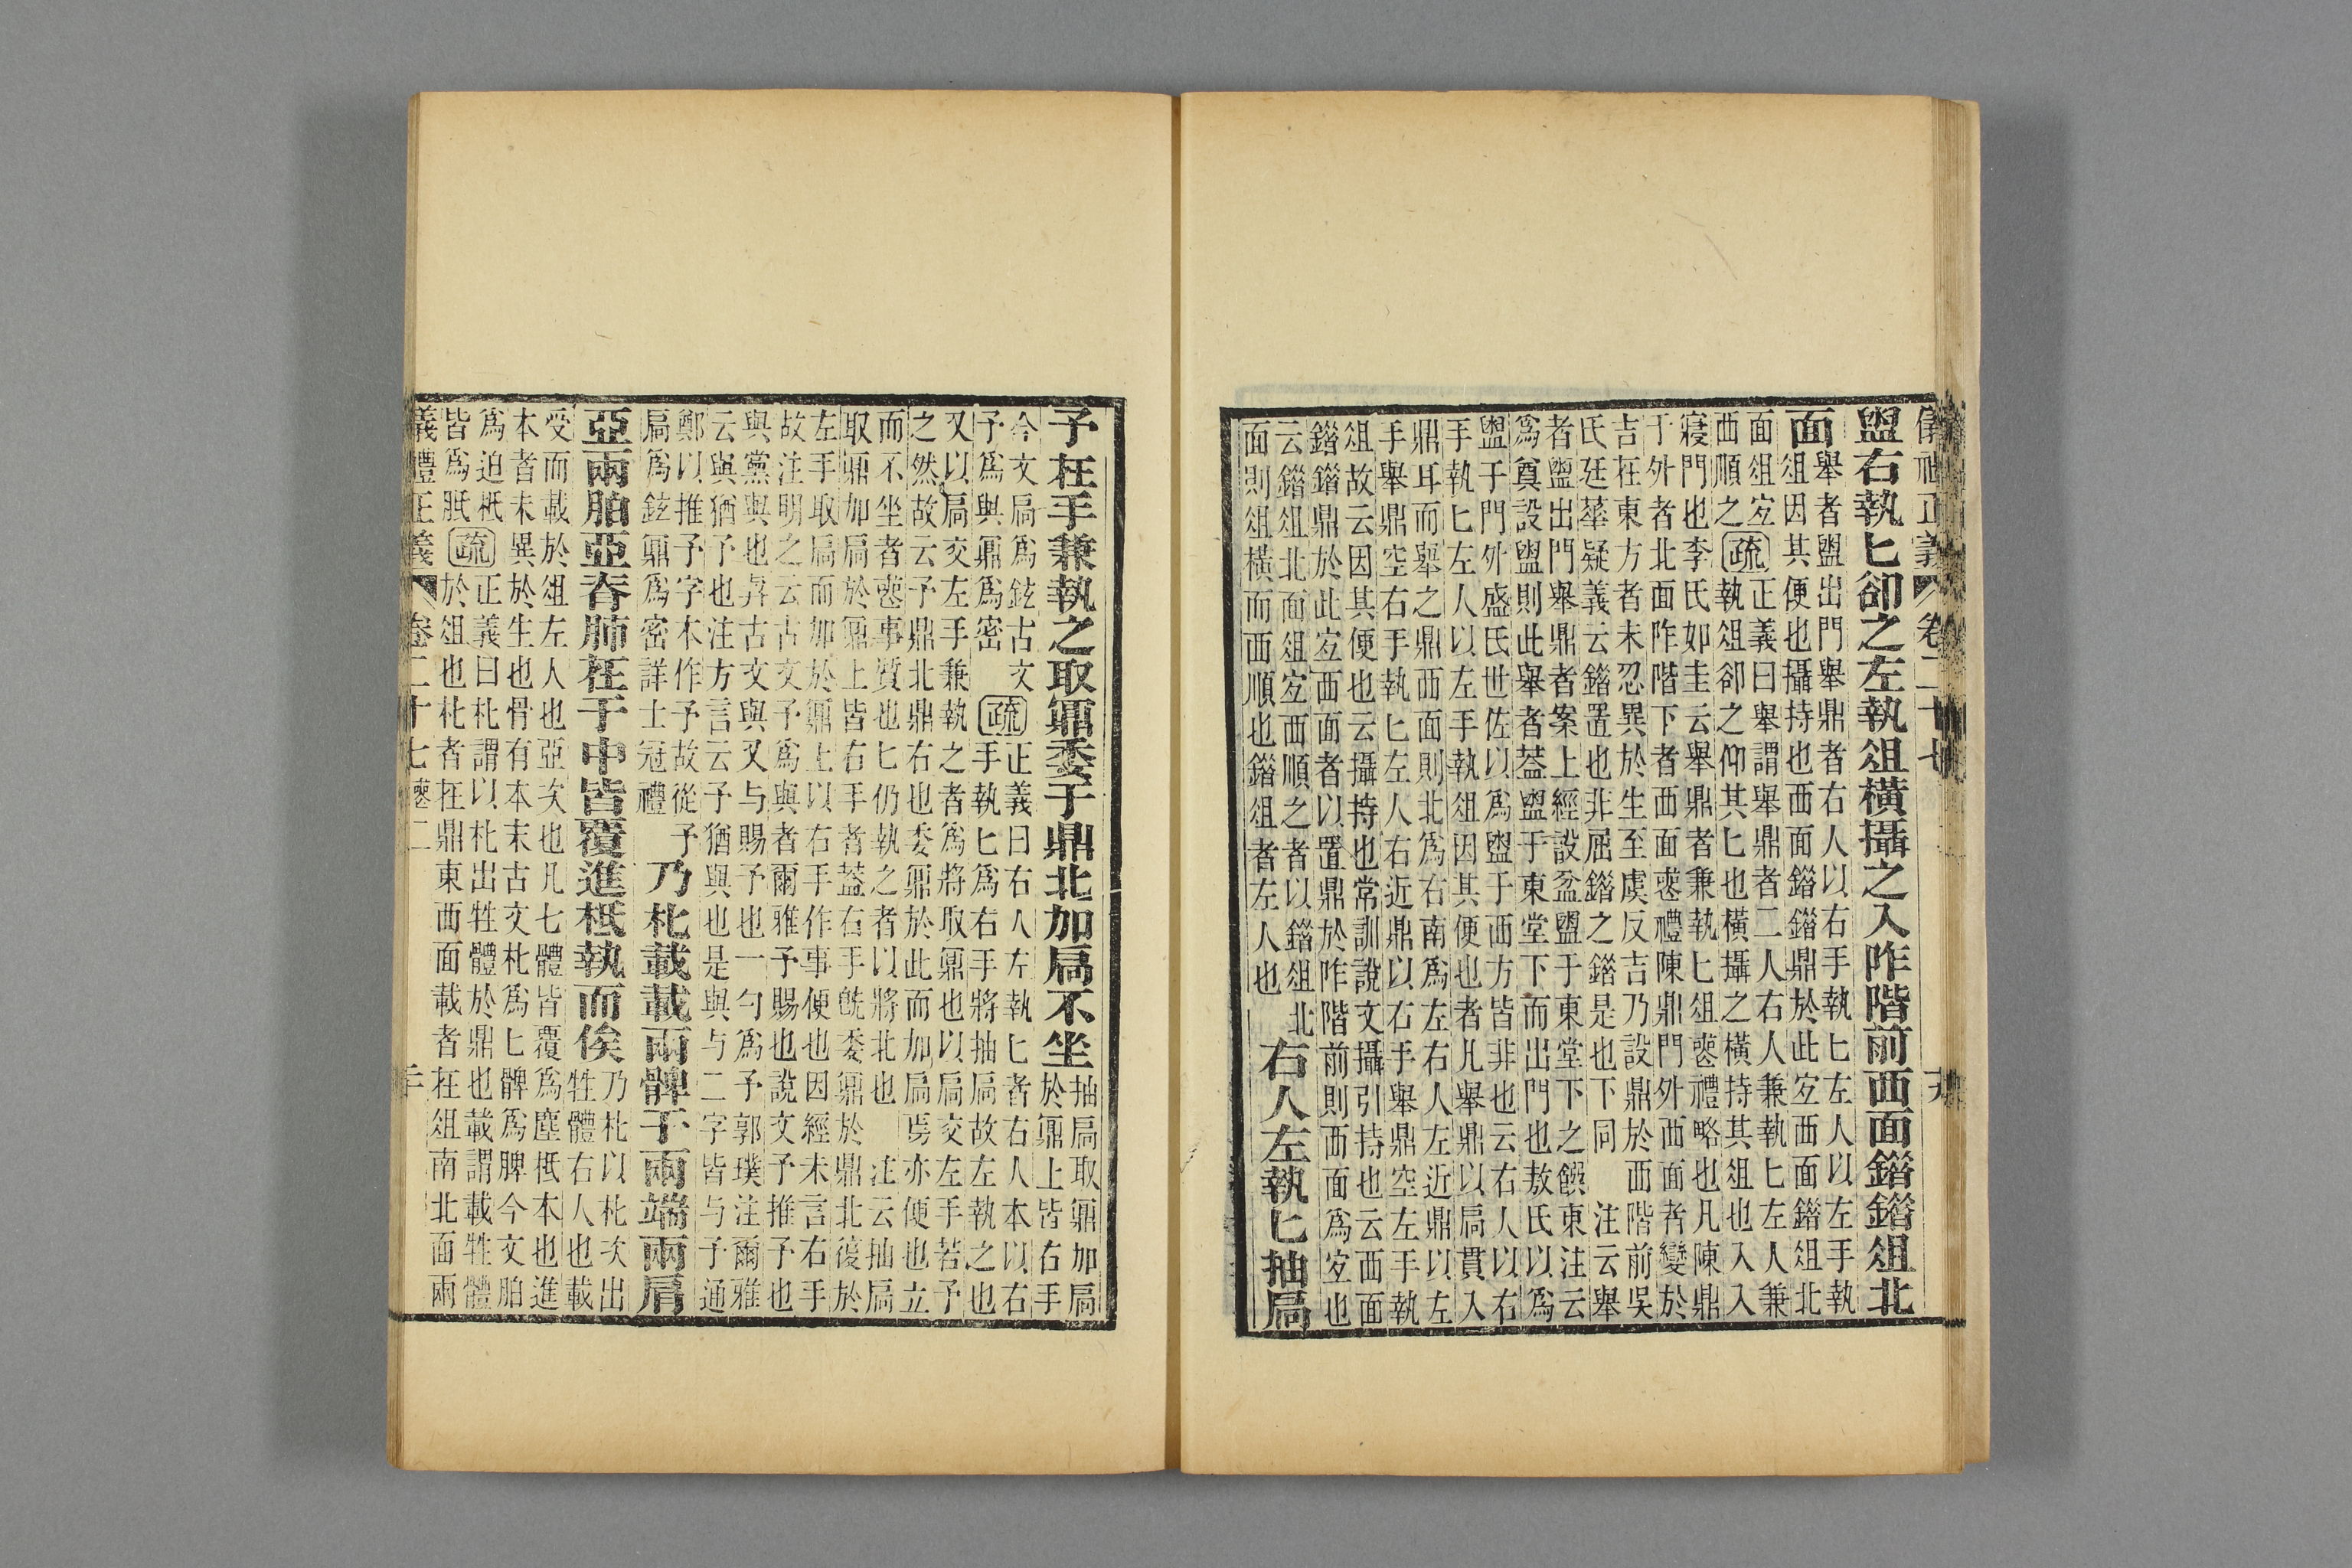 儀禮正義　卷二十七　　　十九
盥右執匕卻之左執俎橫攝之入阼階前西面錯錯俎北
面舉者盥出門舉鼎者右人以右手執匕左人以左手執
俎因其便也攝持也西面錯錯鼎於此宐西面錯俎北
面俎宐西順之疏正義曰舉謂舉鼎者二人右人兼執匕左人兼
執俎卻之仰其匕也橫攝之橫持其俎也入入
寢門也李氏如圭云舉鼎者兼執匕俎喪禮略也凡陳鼎
于外者北面阼階下者西面喪禮陳鼎門外西面者變於
吉在東方者未忍異於生至虞反吉乃設鼎於西階前吳
氏廷華疑義云錯置也非屈錯之錯是也下同　注云舉
者盥出門舉鼎者案上經設盆盥于東堂下之饌東注云
爲奠設盥則此舉者葢盥于東堂下而出門也敖氏以爲
盥于門外盛氏世佐以爲盥于西方皆非也云右人以右
手執匕左人以左手執俎因其便也者凡舉鼎以扃貫入
鼎耳而舉之鼎西面則北爲右南爲左右人左近鼎以左
手舉鼎空右手執匕左人右近鼎以右手舉鼎空左手執
俎故云因其便也云攝持也常訓說文攝引持也云西面
錯錯鼎於此宐西面者以置鼎於阼階前則西面爲宐也
云錯俎北面俎宐西順之者以錯俎北
面則俎橫而西順也錯俎者左人也
右人左執匕抽扃
予在手兼執之取鼏委于鼎北加扃不坐抽扃取鼏加扃
於鼏上皆右手
今文扃爲鉉古文
予爲與鼏爲密疏正義曰右人左執匕者右人本以右
手執匕爲右手將抽扃故左執之也
又以扃交左手兼執之者爲將取鼏也以扃交左手若予
之然故云予鼎北鼎右也委鼏於此而加扃焉亦便也立
而不坐者喪事質也匕仍執之者以將北也　注云抽扃
取鼏加扃於鼏上皆右手者葢右手旣委鼏於鼎北復於
左手取扃而加於鼏上以右手作事便也因經未言右手
故注明之云古文予爲與者爾雅予賜也說文予推予也
與黨與也舁古文與又与賜予也一勺爲予郭璞注爾雅
云與猶予也注方言云予猶與也是與与二字皆与予通
鄭以推予字本作予故從予
扃爲鉉鼏爲密詳士冠禮
乃朼載載兩髀于兩端兩肩
亞兩胉亞脊肺在于中皆覆進柢執而俟乃朼以朼次出
牲體右人也載
受而載於俎左人也亞次也凡七體皆覆爲塵柢本也進
本者未異於生也骨有本末古文朼爲匕髀爲脾今文胉
爲迫柢
皆爲胝疏正義曰朼謂以朼出牲體於鼎也載謂載牲體
於俎也朼者在鼎東西面載者在俎南北面兩
儀禮正義　卷二十七　喪二　　　二十